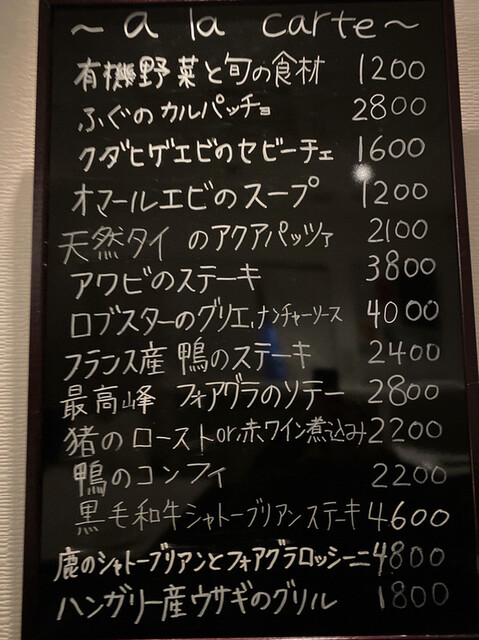 ~ a la carte ~
有機野菜と旬の食材 1200
ふぐのカルパッチョ 2800
クダヒゲエビのセビーチェ 1600
オマールエビのスープ 1200
天然タイ のアクアパッツァ 2100
アワビのステーキ 3800
ロブスターのグリエ,ナンチャーソース 4000
フランス産 鴨のステーキ 2400
最高峰 フォアグラのソテー 2800
猪の ローストor,赤ワイン煮込み 2200
鴨のコンフィ 2200
黒毛和牛シャトーブリアンステーキ 4.600
鹿のシャトーブリアンとフォアグラロッシーニ 4800
ハンガリー産ウサギのグリル 1800